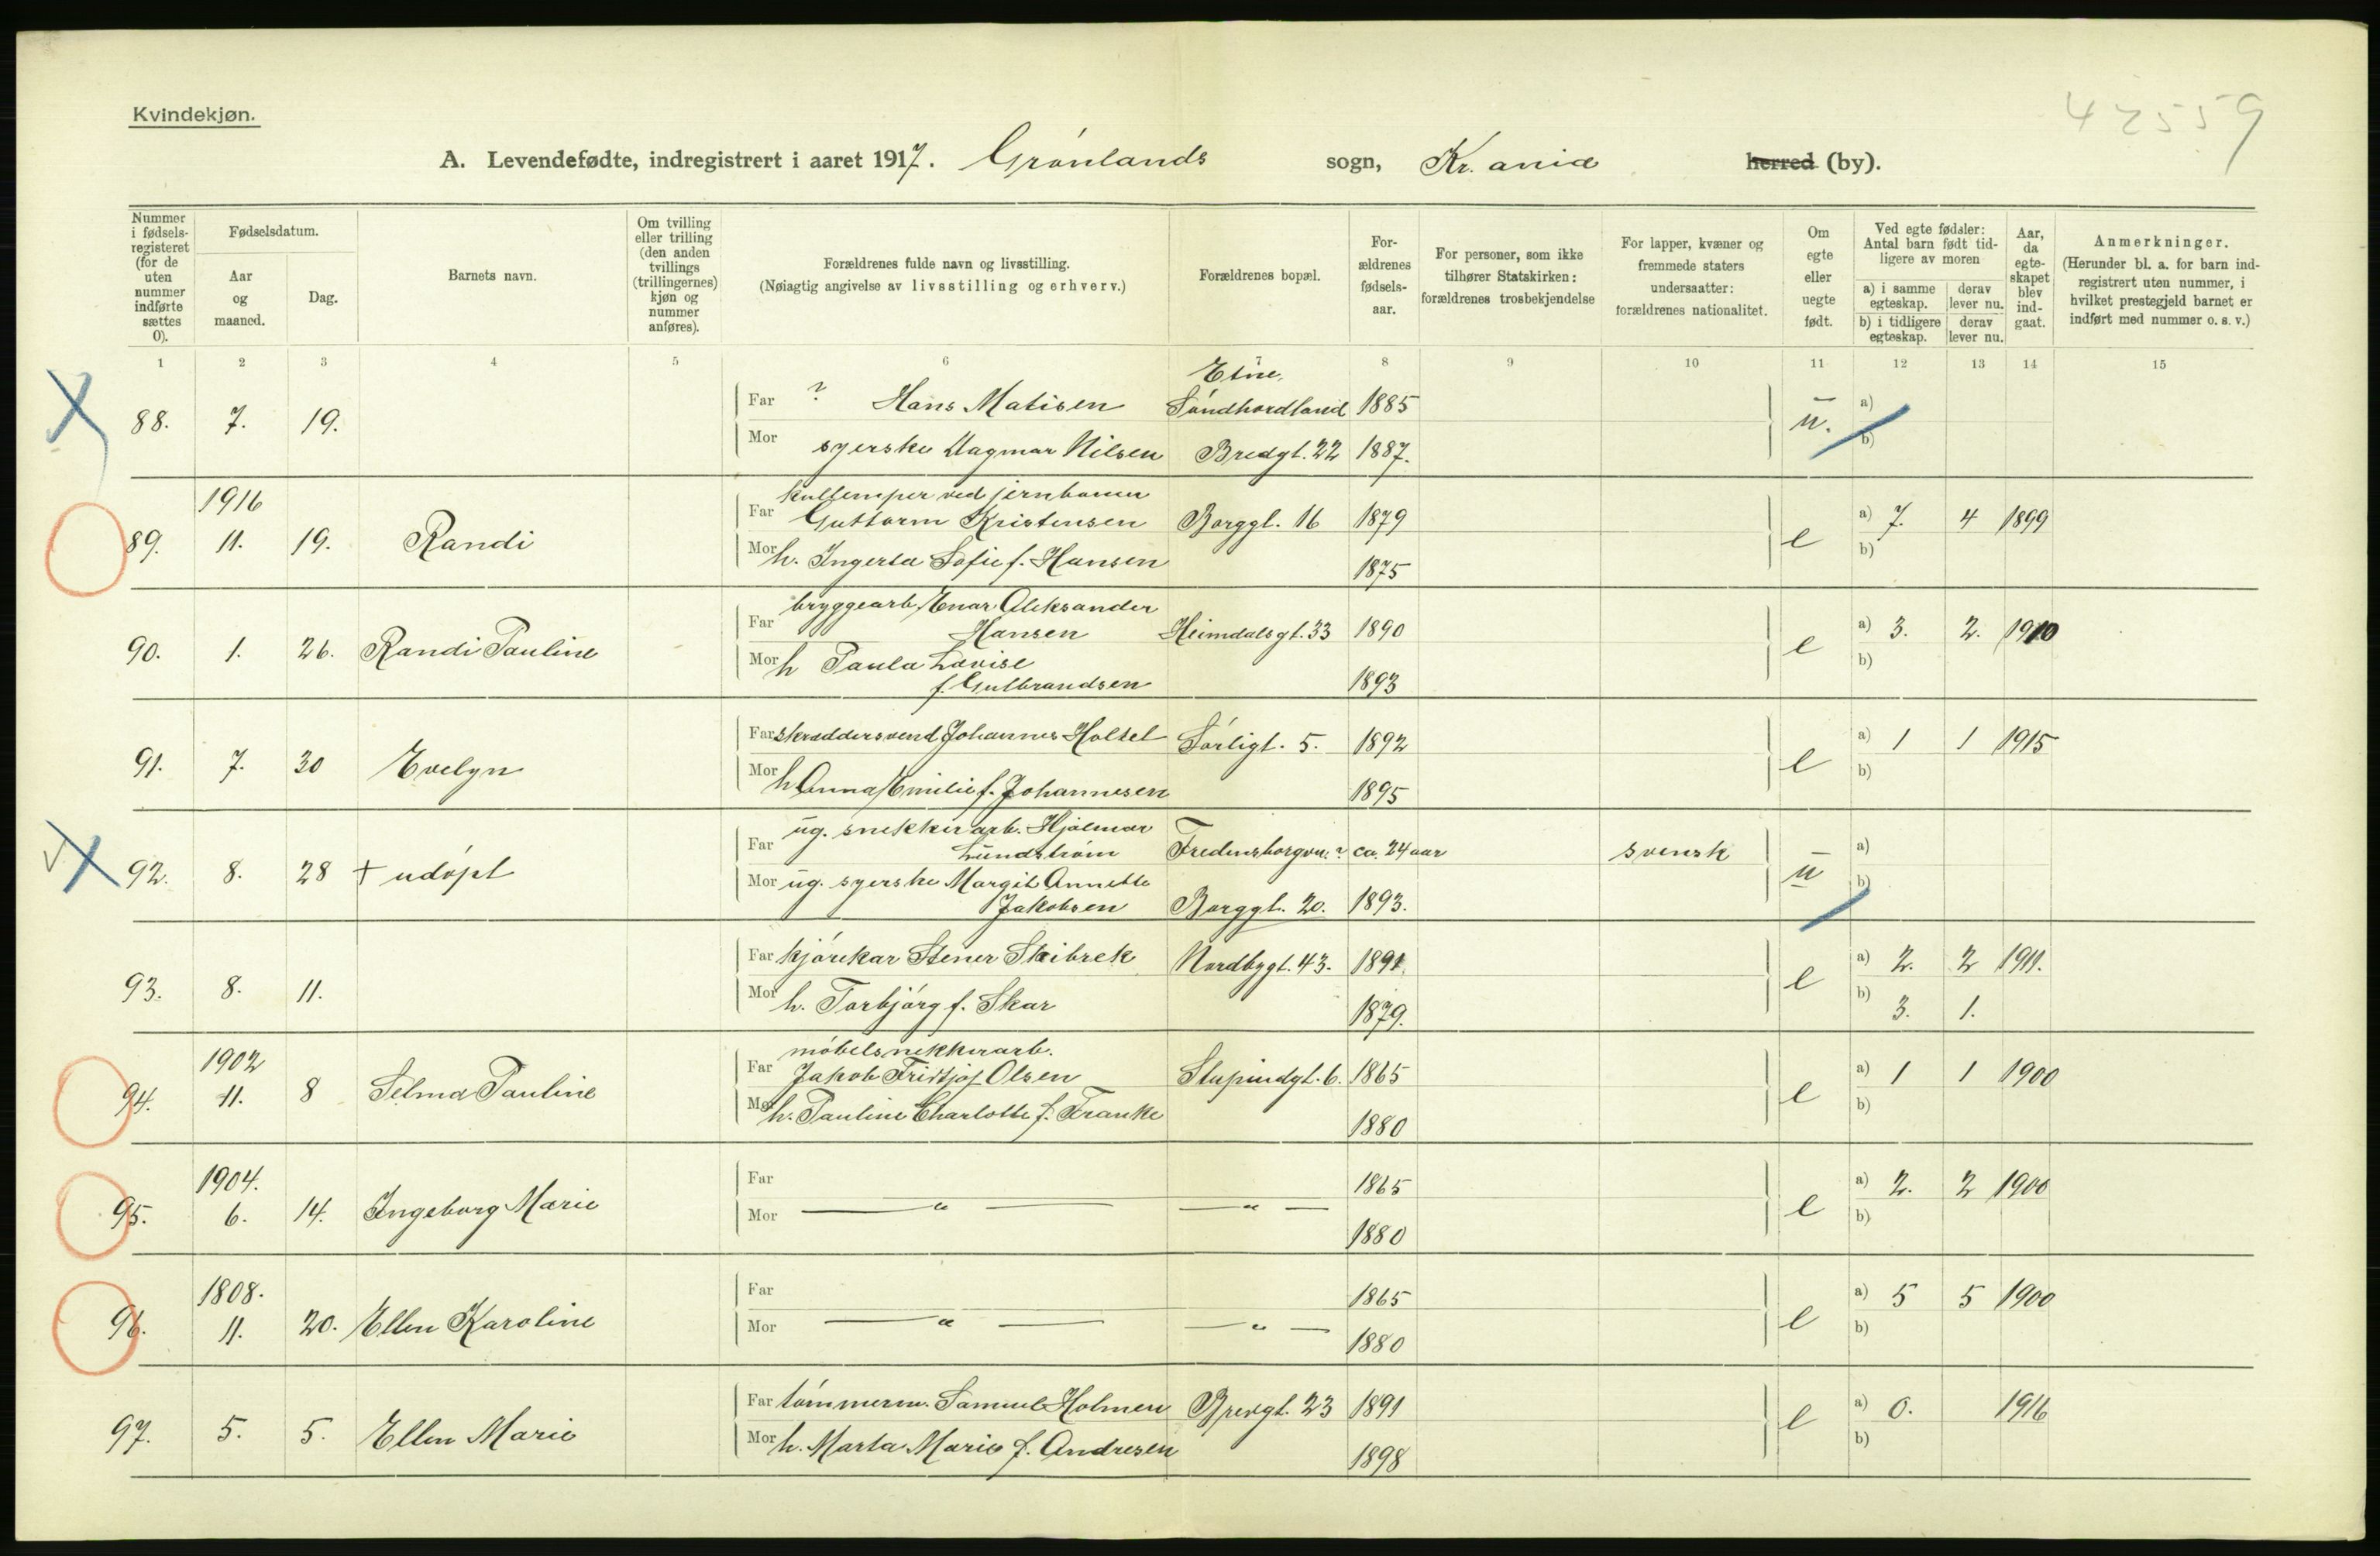 Kvindekjøn.
42559
A. Levendefødte, indregistrert i aaret 1917. Grønlands sogn, Kr.ania herred (by).
Nummer i fødsels-registeret (for de uten nummer indførte sættes 0).
Fødselsdatum.
Aar og maaned.
Dag.
Barnets navn.
Om tvilling eller trilling (den anden tvillings (trillingernes) kjøn og nummer anføres).
Forældrenes fulde navn og livsstilling.
(Nøiagtig angivelse av livsstilling og erhverv.)
Forældrenes bopæl.
For-ældrenes fødsels-aar.
For personer, som ikke tilhører Statskirken: forældrenes trosbekjendelse
For lapper, kvæner og fremmede staters undersaatter: forældrenes nationalitet.
Om egte eller uegte født.
Ved egte fødsler: Antal barn født tid-ligere av moren
a) i samme egteskap. derav lever nu.
b) i tidligere egteskap. derav lever nu.
Aar, da egte-skapet blev ind-gaat.
Anmerkninger.
(Herunder bl. a. for barn ind-registrert uten nummer, i hvilket prestegjeld barnet er indført med nummer o. s. v.)
1 2 3 4 5 6 7 8 9 10 11 12 13 14 15
Etne,
88. 7. 19. Far ? Hans Matisen Søndhordland 1885 u. a)
Mor syerske Dagmar Nilsen Bredgt. 22 1887. b)
1916 kullemper ved jernbanen
89. 11. 19. Randi Far Guttorm Kristensen Borggt. 16 1879 e a) 7. 4 1899
Mor h. Ingerta Sofie f. Hansen 1875 b)
bryggearb. Enar Aleksander
90. 1. 26. Randi Pauline Far Hansen Heimdalsgt. 33 1890 e a) 3. 2. 1910
Mor h Paula Lovise b)
f. Gulbrandsen 1893
91. 7. 30 Evelyn Far skræddersvend Johannes Holsel Sørligt. 5. 1892 e a) 1 1 1915
Mor h Anna Emilie f. Johannesen 1895 b)
ug. snekkerarb. Hjalmar
92. 8. 28 + udøpt Far Lundstrøm Fredensborgvn. ? ca. 24 aar svensk u a)
Mor ug. syerske Margit Annette b)
Jakobsen Borggt. 20. 1893.
93. 8. 11. Far kjørekar Stener Skibrek Nordbygt. 43. 1891 e a) 2. 2 1911.
Mor h. Torbjørg f. Skar 1879. b) 3. 1.
1902 møbelsnekkerarb.
94. 11. 8 Selma Pauline Far Jakob Fridtjof Olsen Stupindgt. 6. 1865 e a) 1 1 1900
Mor h. Pauline Charlotte f. Franke 1880 b)
1904.
95. 6. 14. Ingeborg Marie Far 1865 e a) 2. 2 1900
Mor — " — — " — 1880 b)
1808.
96. 11. 20. Ellen Karoline Far 1865 e a) 5 5 1900
Mor — " — — " — 1880 b)
97. 5. 5. Ellen Marie Far tømmerm. Samuel Holmen Brevgt. 23 1891 e a) 0. 1916
Mor h. Marta Marie f. Andresen 1898 b)